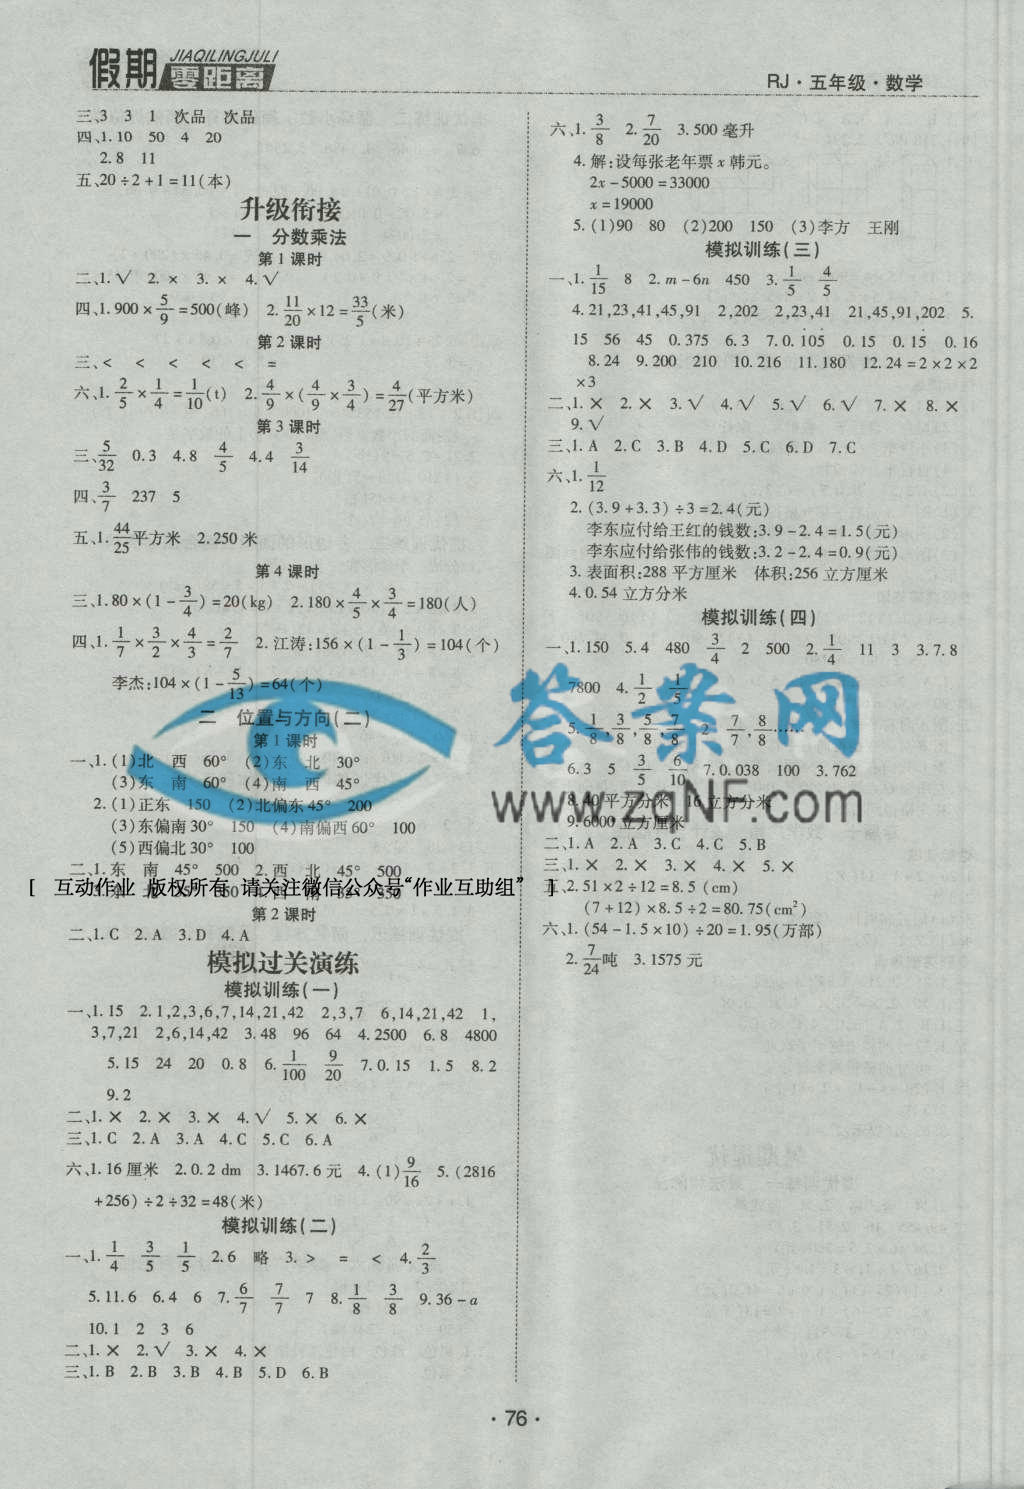 假期 JIAQILINGJULI
零距离
RJ·五年级·数学
三、3 3 1 次品 次品
四、1.10 50 4 20
2.8 11
五、20÷2+1=11(本)
升级衔接
一 分数乘法
第1课时
二、1.√ 2.× 3.× 4.√
四、1.900×5/9=500(峰) 2.11/20×12=33/5(米)
第2课时
三、< < < < < =
六、1.2/5×1/4=1/10(t) 2.4/9×(4/9×3/4)=4/27(平方米)
第3课时
三、5/32 0.3 4.8 4/5 4.4 3/14
四、3/7 237 5
五、1.44/25平方米 2.250米
第4课时
三、1.80×(1-3/4)=20(kg) 2.180×4/5×3/4=180(人)
四、1.1/7×3/2×4/3=2/7 2.江涛:156×(1-1/3)=104(个)
李杰:104×(1-5/13)=64(个)
二 位置与方向(二)
第1课时
一、1.(1)北 西 60° (2)东 北 30°
(3)东 南 60° (4)南 西 45°
2.(1)正东 150 (2)北偏东45° 200
(3)东偏南30° 150 (4)南偏西60° 100
(5)西偏北30° 100
二、1.东 南 45° 500 2.西 北 45° 500
[ 互动作业 版权所有 请关注微信公众号“作业互助组” ]
第2课时
二、1.C 2.A 3.D 4.A
模拟过关演练
模拟训练(一)
一、1.15 2.1,2,3,6,7,14,21,42 2,3,7 6,14,21,42 1,
3,7,21 2,6,14,42 3.48 96 64 4.2500 6.8 4800
5.15 24 20 0.8 6.1/100 9/20 7.0.15 1.5 8.2
9.2
二、1.× 2.× 3.× 4.√ 5.× 6.×
三、1.C 2.A 3.A 4.C 5.C 6.A
六、1.16厘米 2.0.2 dm 3.1467.6元 4.(1)9/16 5.(2816
+256)÷2÷32=48(米)
模拟训练(二)
一、1.1/4 3/5 1/5 2.6 略 3.> = < 4.2/3
5.11.6 6.4 6 7.6/7 7/7 7 8.1/8 3/8 9.36-a
10.1 2 3 6
二、1.× 2.√ 3.× 4.×
三、1.B 2.B 3.B 4.B 5.D 6.B
六、1.3/8 2.7/20 3.500毫升
4.解:设每张老年票x韩元。
2x-5000=33000
x=19000
5.(1)90 80 (2)200 150 (3)李方 王刚
模拟训练(三)
一、1.1/15 8 2.m-6n 450 3.1/5 4/5
4.21,23,41,45,91 2,202 2,23,41 21,45,91,202 5.
15 56 45 0.375 6.3 7.0.1̇05̇ 0.15 0.1̇5̇ 0.16
8.24 9.200 210 10.216 11.180 12.24=2×2×2
×3
二、1.× 2.× 3.√ 4.√ 5.√ 6.√ 7.× 8.×
9.√
三、1.A 2.C 3.B 4.D 5.C 6.D 7.C
六、1.1/12
2.(3.9+3.3)÷3=2.4(元)
李东应付给王红的钱数:3.9-2.4=1.5(元)
李东应付给张伟的钱数:3.2-2.4=0.9(元)
3.表面积:288平方厘米 体积:256立方厘米
4.0.54立方分米
模拟训练(四)
一、1.150 5.4 480 3/4 2 500 2.1/4 11 3 3.7.8
7800 4.1/2 1/5
5.1/8,3/8,5/8,7/8 2 7/7,8/8……
6.3 5 3/5 6/10 7.0.038 100 3.762
8.40平方分米 16立方分米
9.6000立方厘米
二、1.D 2.A 3.C 4.C 5.B
三、1.× 2.× 3.× 4.×
五、2.51×2÷12=8.5(cm)
(7+12)×8.5÷2=80.75(cm²)
六、1.(54-1.5×10)÷20=1.95(万部)
2.7/24吨 3.1575元
答案网
www.zqNF.com
·76·